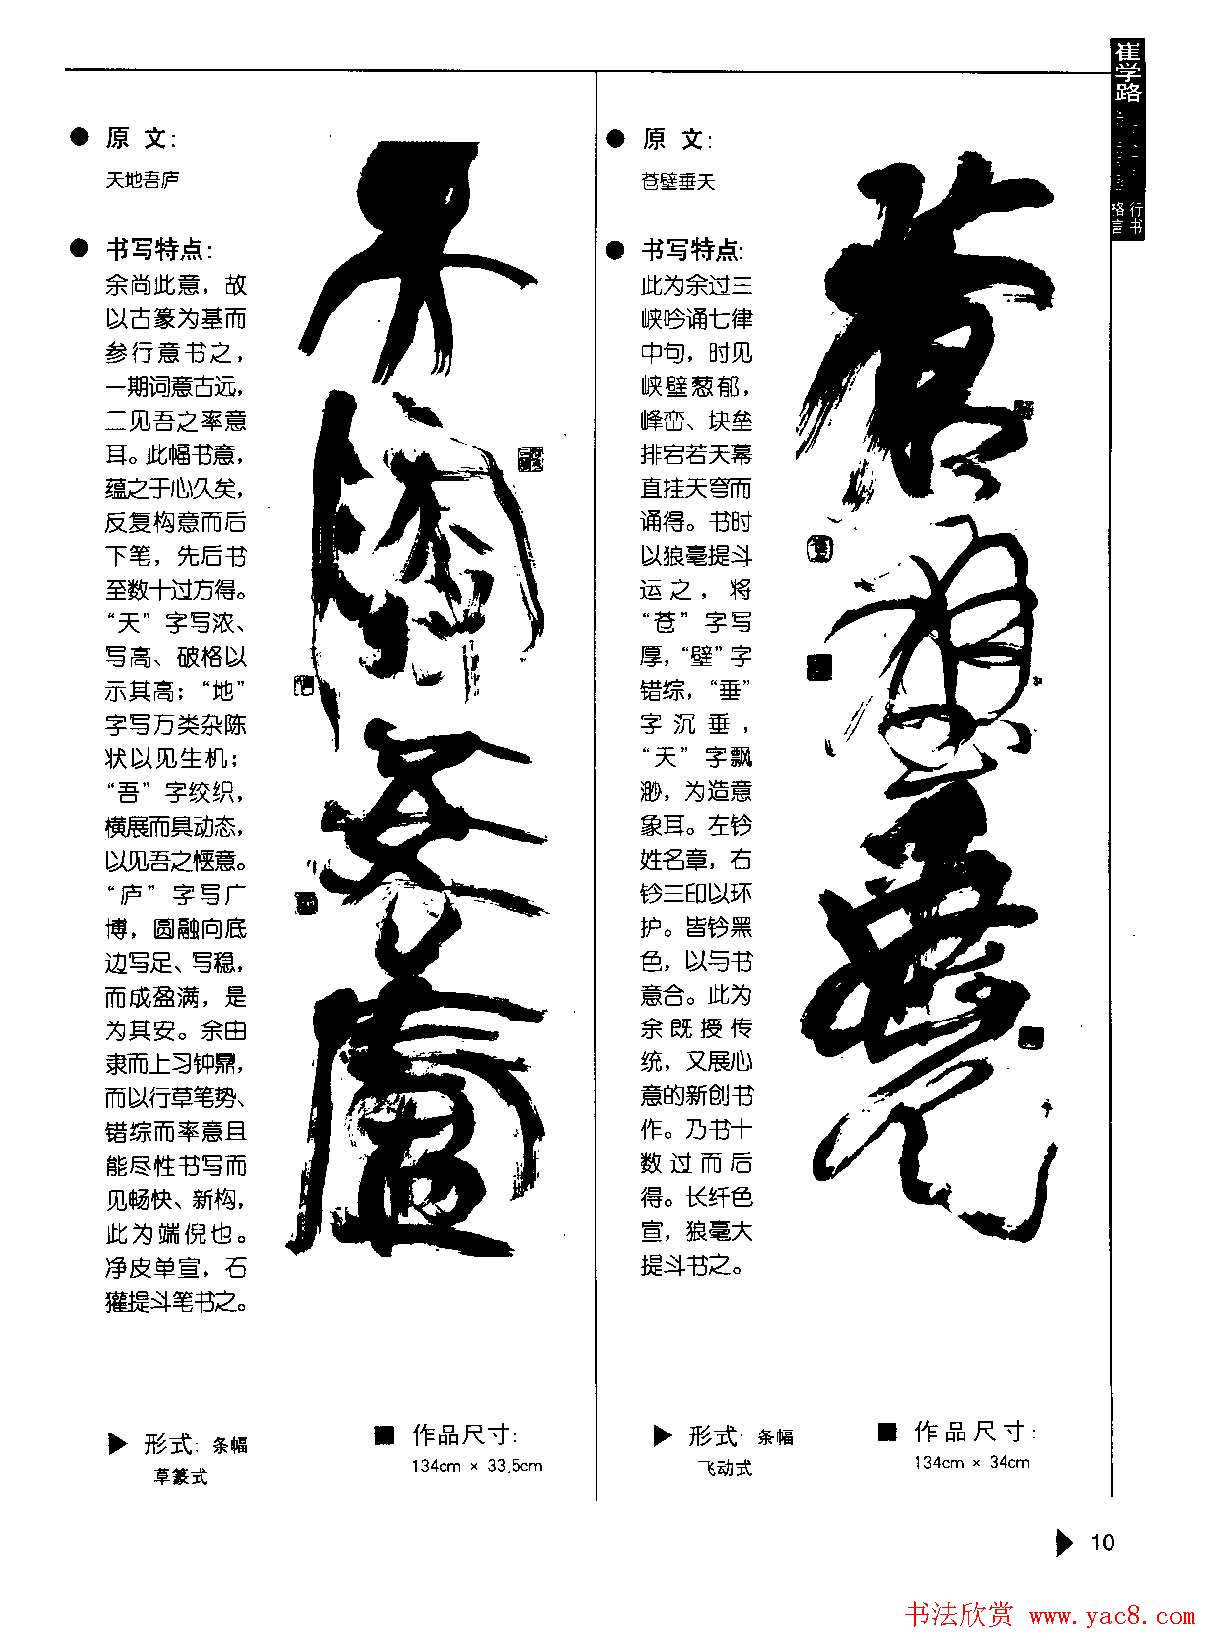 崔学路
行书
格言
● 原 文：
天地吾庐
● 书写特点：
余尚此意，故
以古篆为基而
参行意书之，
一期词意古远，
二见吾之率意
耳。此幅书意，
蕴之于心久矣，
反复构意而后
下笔，先后书
至数十过方得。
“天”字写浓、
写高、破格以
示其高；“地”
字写万类杂陈
状以见生机；
“吾”字绞织，
横展而具动态，
以见吾之惬意。
“庐”字写广
博，圆融向底
边写足、写稳，
而成盈满，是
为其安。余由
隶而上习钟鼎，
而以行草笔势、
错综而率意且
能尽性书写而
见畅快、新构，
此为端倪也。
净皮单宣，石
獾提斗笔书之。
▶ 形式：条幅
草篆式
■ 作品尺寸：
134cm × 33.5cm
● 原 文：
苍壁垂天
● 书写特点：
此为余过三
峡吟诵七律
中句，时见
峡壁葱郁，
峰峦、块垒
排宕若天幕
直挂天穹而
诵得。书时
以狼毫提斗
运之，将
“苍”字写
厚，“壁”字
错综，“垂”
字沉垂，
“天”字飘
渺，为造意
象耳。左钤
姓名章，右
钤三印以环
护。皆钤黑
色，以与书
意合。此为
余既授传
统，又展心
意的新创书
作。乃书十
数过而后
得。长纤色
宣，狼毫大
提斗书之。
▶ 形式：条幅
飞动式
■ 作品尺寸：
134cm × 34cm
天地吾廬
苍壁垂天
▶ 10
书法欣赏 www.yac8.com